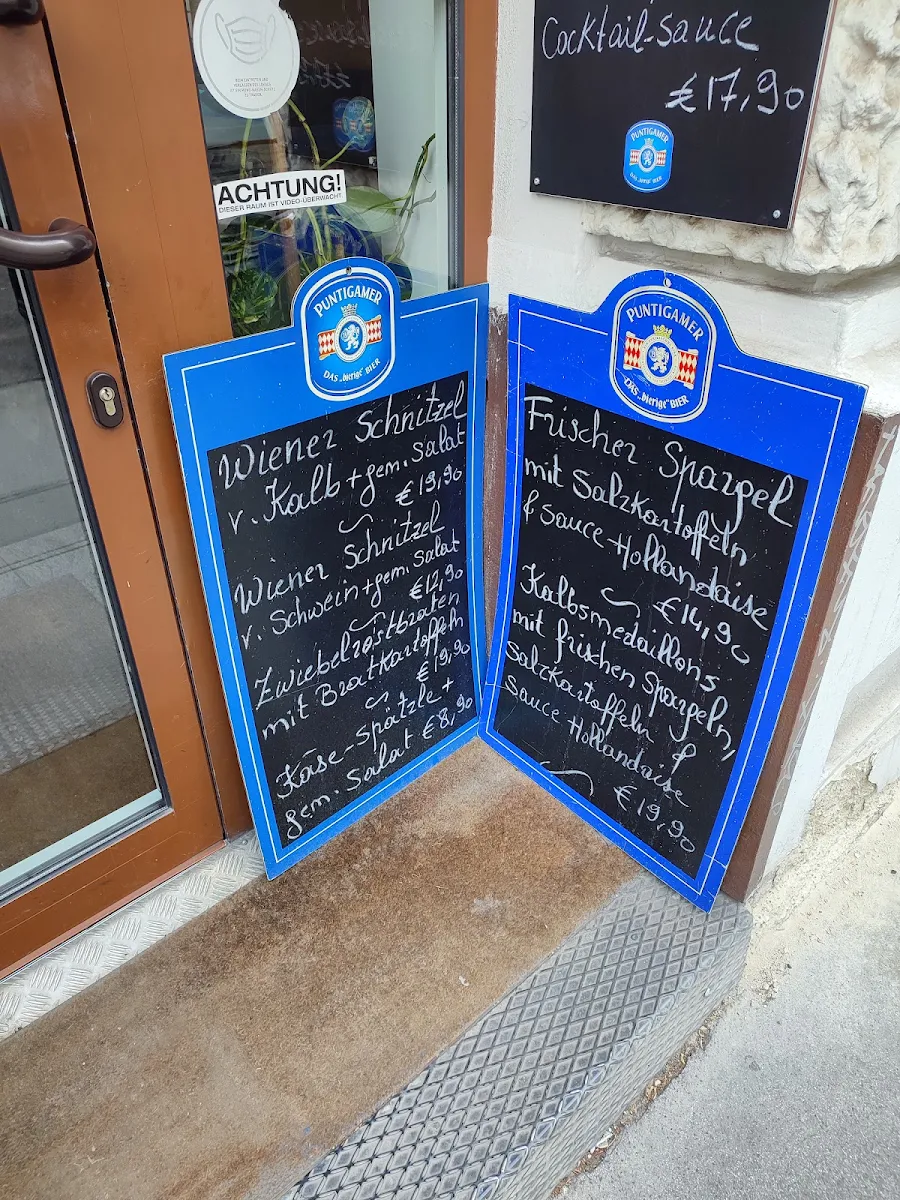 Cocktail-sauce
€17,90
PUNTIGAMER
DAS „bierige" BIER
ACHTUNG!
DIESER RAUM IST VIDEO-ÜBERWACHT
PUNTIGAMER
DAS „bierige" BIER
Wiener Schnitzel
v. Kalb + gem. Salat
€19,90
Wiener Schnitzel
v. Schwein + gem. Salat
€12,90
Zwiebelrostbraten
mit Bratkartoffeln
€19,90
Käse-Spätzle +
gem. Salat €8,90
PUNTIGAMER
DAS „bierige" BIER
Frischer Spargel
mit Salzkartoffeln
& Sauce-Hollandaise
€14,90
Kalbsmedaillons
mit frischen Spargeln,
Salzkartoffeln &
Sauce-Hollandaise
€19,90